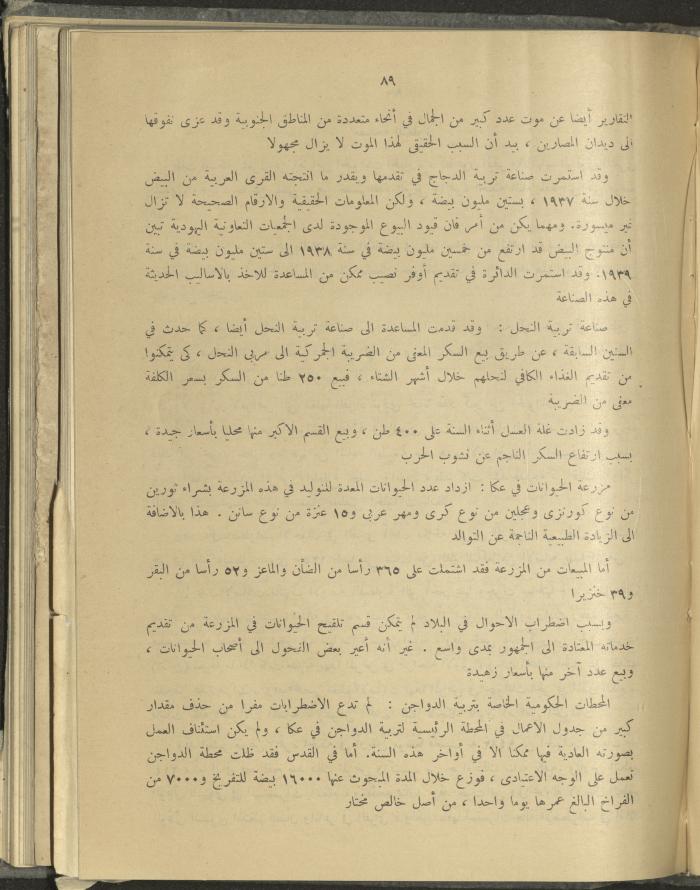 ٨٩
التقارير أيضا عن موت عدد كبير من الجمال في أنحاء متعددة من المناطق الجنوبية وقد عزى نفوقها
الى ديدان المصارين ، بيد أن السبب الحقيقى لهذا الموت لا يزال مجهولا
وقد استمرت صناعة تربية الدجاج في تقدمها ويقدر ما انتجته القرى العربية من البيض
خلال سنة ١٩٣٧ ، بستين مليون بيضة ، ولكن المعلومات الحقيقية والارقام الصحيحة لا تزال
غير ميسورة. ومهما يكن من أمر فان قيود البيوع الموجودة لدى الجمعيات التعاونية اليهودية تبين
أن منتوج البيض قد ارتفع من خمسين مليون بيضة في سنة ١٩٣٨ الى ستين مليون بيضة في سنة
١٩٣٩. وقد استمرت الدائرة في تقديم أوفر نصيب ممكن من المساعدة للاخذ بالاساليب الحديثة
في هذه الصناعة
صناعة تربية النحل : وقد قدمت المساعدة الى صناعة تربية النحل أيضا ، كما حدث في
السنين السابقة ، عن طريق بيع السكر المعفى من الضريبة الجمركية الى مربى النحل ، كى يتمكنوا
من تقديم الغذاء الكافي لنحلهم خلال أشهر الشتاء ، فبيع ٢٥٠ طنا من السكر بسعر الكلفة
معفى من الضريبة
وقد زادت غلة العسل أثناء السنة على ٤٠٠ طن ، وبيع القسم الاكبر منها محليا بأسعار جيدة ،
بسبب ارتفاع السكر الناجم عن نشوب الحرب
مزرعة الحيوانات في عكا : ازداد عدد الحيوانات المعدة للتوليد في هذه المزرعة بشراء ثورين
من نوع كورنزى وعجلين من نوع كرى ومهر عربى و١٥ عنزة من نوع سانن . هذا بالاضافة
الى الزيادة الطبيعية الناجمة عن التوالد
أما المبيعات من المزرعة فقد اشتملت على ٣٦٥ رأسا من الضأن والماعز و٥٢ رأسا من البقر
و٣٩ خنزيرا
وبسبب اضطراب الاحوال في البلاد لم يتمكن قسم تلقيح الحيوانات في المزرعة من تقديم
خدماته المعتادة الى الجمهور بمدى واسع . غير أنه أعير بعض الفحول الى أصحاب الحيوانات ،
وبيع عدد آخر منها بأسعار زهيدة
المحطات الحكومية الخاصة بتربية الدواجن : لم تدع الاضطرابات مفرا من حذف مقدار
كبير من جدول الاعمال في المحطة الرئيسية لتربية الدواجن في عكا ، ولم يكن استئناف العمل
بصورته العادية فيها ممكنا الا في أواخر هذه السنة. أما في القدس فقد ظلت محطة الدواجن
تعمل على الوجه الاعتيادى ، فوزع خلال المدة المبحوث عنها ١٦٠٠٠ بيضة للتفريخ و٧٠٠٠ من
الفراخ البالغ عمرها يوما واحدا ، من أصل خالص مختار